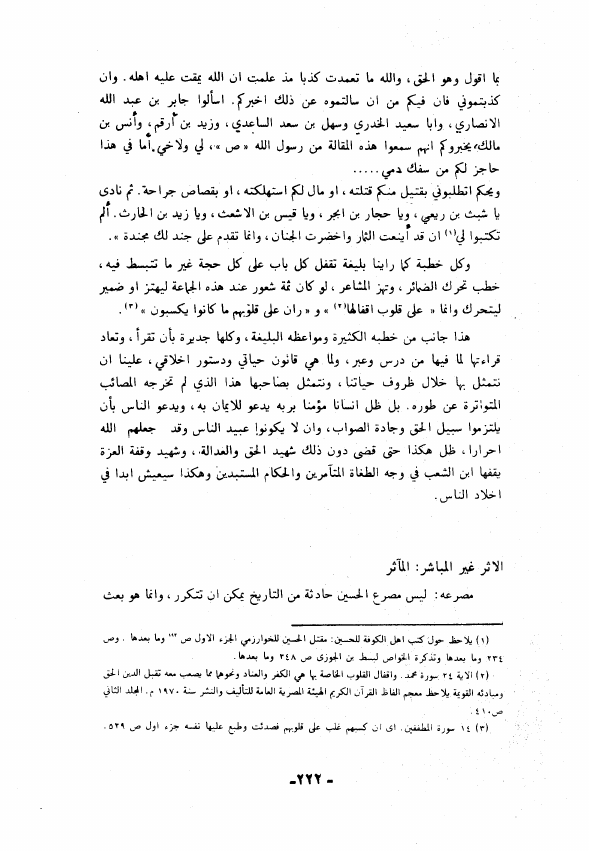 بما اقول وهو الحق، والله ما تعمدت كذبا مذ علمت ان الله يمقت عليه اهله. وان
كذبتموني فان فيكم من ان سالتموه عن ذلك اخبركم. اسألوا جابر بن عبد الله
الانصاري، وابا سعيد الخدري وسهل بن سعد الساعدي، وزيد بن أرقم، وأنس بن
مالك، يخبروكم انهم سمعوا هذه المقالة من رسول الله « ص »، لي ولاخي أما في هذا
حاجز لكم من سفك دمي.....
ويحكم اتطلبوني بقتيل منكم قتلته، او مال لكم استهلكته، او بقصاص جراحة. ثم نادى
يا شبث بن ربعي، ويا حجار بن ابجر، ويا قيس بن الاشعث، ويا زيد بن الحارث. ألم
تكتبوا لي(١) ان قد أينعت الثمار واخضرت الجنان، وانما تقدم على جند لك مجندة ».
وكل خطبة كما راينا بليغة تقفل كل باب على كل حجة غير ما تتبسط فيه،
خطب تحرك الضمائر، وتهز المشاعر، لو كان ثمة شعور عند هذه الجماعة ليهتز او ضمير
ليتحرك وانما « على قلوب اقفالها(٢) » و « ران على قلوبهم ما كانوا يكسبون »(٣).
هذا جانب من خطبه الكثيرة ومواعظه البليغة، وكلها جديرة بأن تقرأ، وتعاد
قراءتها لما فيها من درس وعبر، ولما هي قانون حياتي ودستور اخلاقي، علينا ان
نتمثل بها خلال ظروف حياتنا، ونتمثل بصاحبها هذا الذي لم تخرجه المصائب
المتواترة عن طوره. بل ظل انسانا مؤمنا بربه يدعو للايمان به، ويدعو الناس بأن
يلتزموا سبيل الحق وجادة الصواب، وان لا يكونوا عبيد الناس وقد جعلهم الله
احرارا، ظل هكذا حتى قضى دون ذلك شهيد الحق والعدالة، وشهيد وقفة العزة
يقفها ابن الشعب في وجه الطغاة المتآمرين والحكام المستبدين وهكذا سيعيش ابدا في
اخلاد الناس.
الاثر غير المباشر: المآثر
مصرعه: ليس مصرع الحسين حادثة من التاريخ يمكن ان تتكرر، وانما هو بعث
(١) يلاحظ حول كتب اهل الكوفة للحسين: مقتل الحسين للخوارزمي الجزء الاول ص ١٩٣ وما بعدها. وص
٢٣٤ وما بعدها وتذكرة الخواص لبسط بن الجوزى ص ٢٤٨ وما بعدها.
(٢) الاية ٢٤ سورة محمد. واقفال القلوب الخاصة بها هي الكفر والعناد ونحوهما مما يصعب معه تقبل الدين الحق
ومبادئه القويمة يلاحظ معجم الفاظ القرآن الكريم الهيئة المصرية العامة للتأليف والنشر سنة ١٩٧٠ م. المجلد الثاني
ص٤١٠.
(٣) ١٤ سورة المطففين. اى ان كسبهم غلب على قلوبهم فصدئت وطبع عليها نفسه جزء اول ص ٥٢٩.
-٢٢٢-